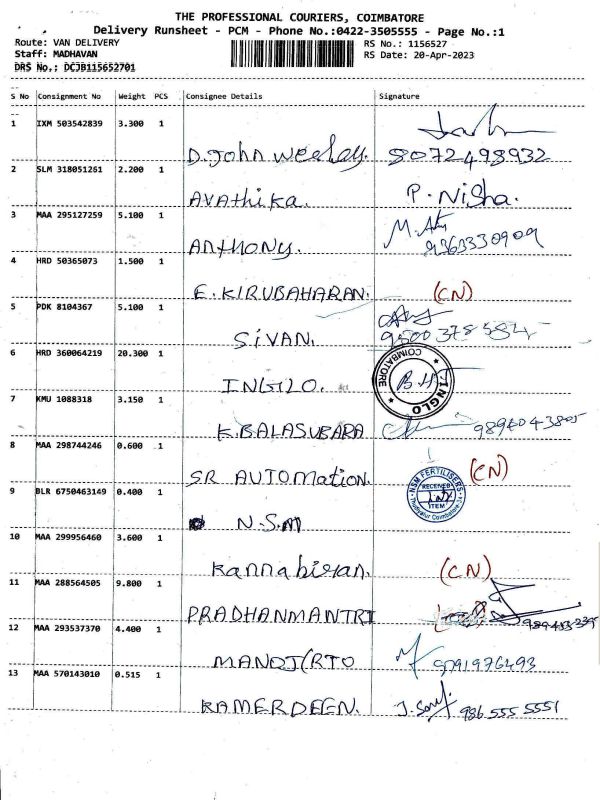 THE PROFESSIONAL COURIERS, COIMBATORE
Delivery Runsheet - PCM - Phone No.:0422-3505555 - Page No.:1
Route: VAN DELIVERY RS No.: 1156527
Staff: MADHAVAN RS Date: 20-Apr-2023
DRS No.: DCJB115652701
S No Consignment No Weight PCS Consignee Details Signature
1 IXM 503542839 3.300 1
D. John Wesley. 8072498932
2 SLM 318051261 2.200 1
AVAthika. P. Nisha.
3 MAA 295127259 5.100 1
Anthony. 9363330909
4 HRD 50365073 1.500 1
E. KIRUBAHARAN. (CN)
5 PDK 8104367 5.100 1
SIVAN.
6 HRD 360064219 20.300 1
INGLO. COIMBATORE INGLO
7 KMU 1088318 3.150 1
K.BALASUBARA
8 MAA 298744246 0.600 1
SR AUTOMation. (CN)
NSM FERTILISERS
RECEIVED
ITEM
9 BLR 6750463149 0.400 1
N.S.M
10 MAA 299956460 3.600 1
Kannabiran. (CN)
11 MAA 288564505 9.800 1
PRADHANMANTRI
12 MAA 293537370 4.400 1
MANOJ(RTO 9091976493
13 MAA 570143010 0.515 1
KAMERDEEN. 986 555 5551